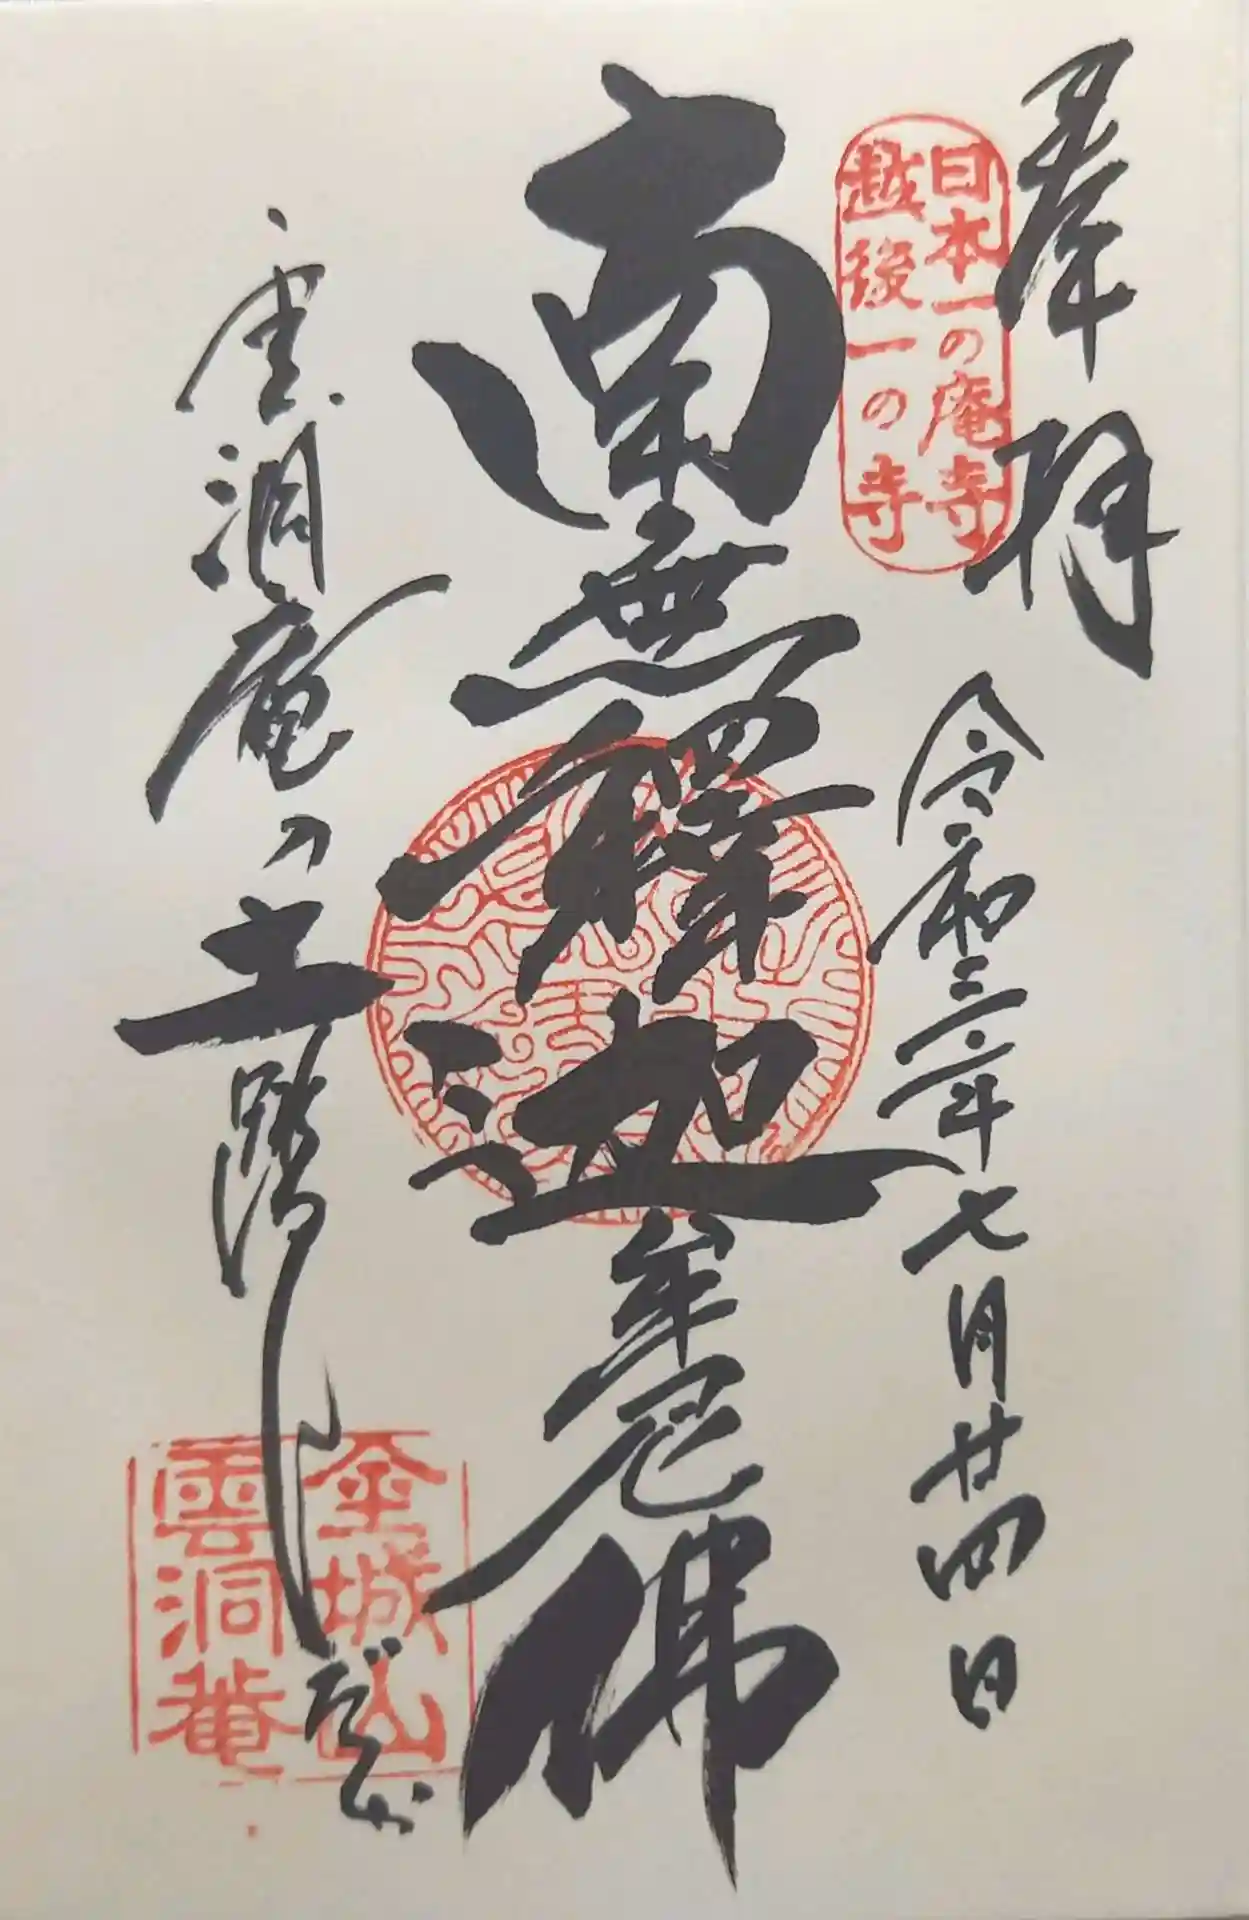 奉拝
日本一の庵寺
越後一の寺
令和三年七月廿四日
南無釋迦牟尼佛
雲洞庵の土踏んだか
金城山
雲洞菴